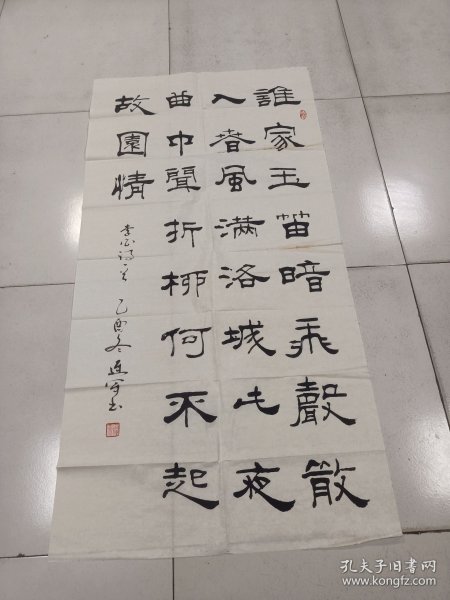 誰家玉笛暗飛聲散
入春風滿洛城此夜
曲中聞折柳何不起
故園情
李白詩 乙酉冬
孔夫子旧书网
www.kongfz.com